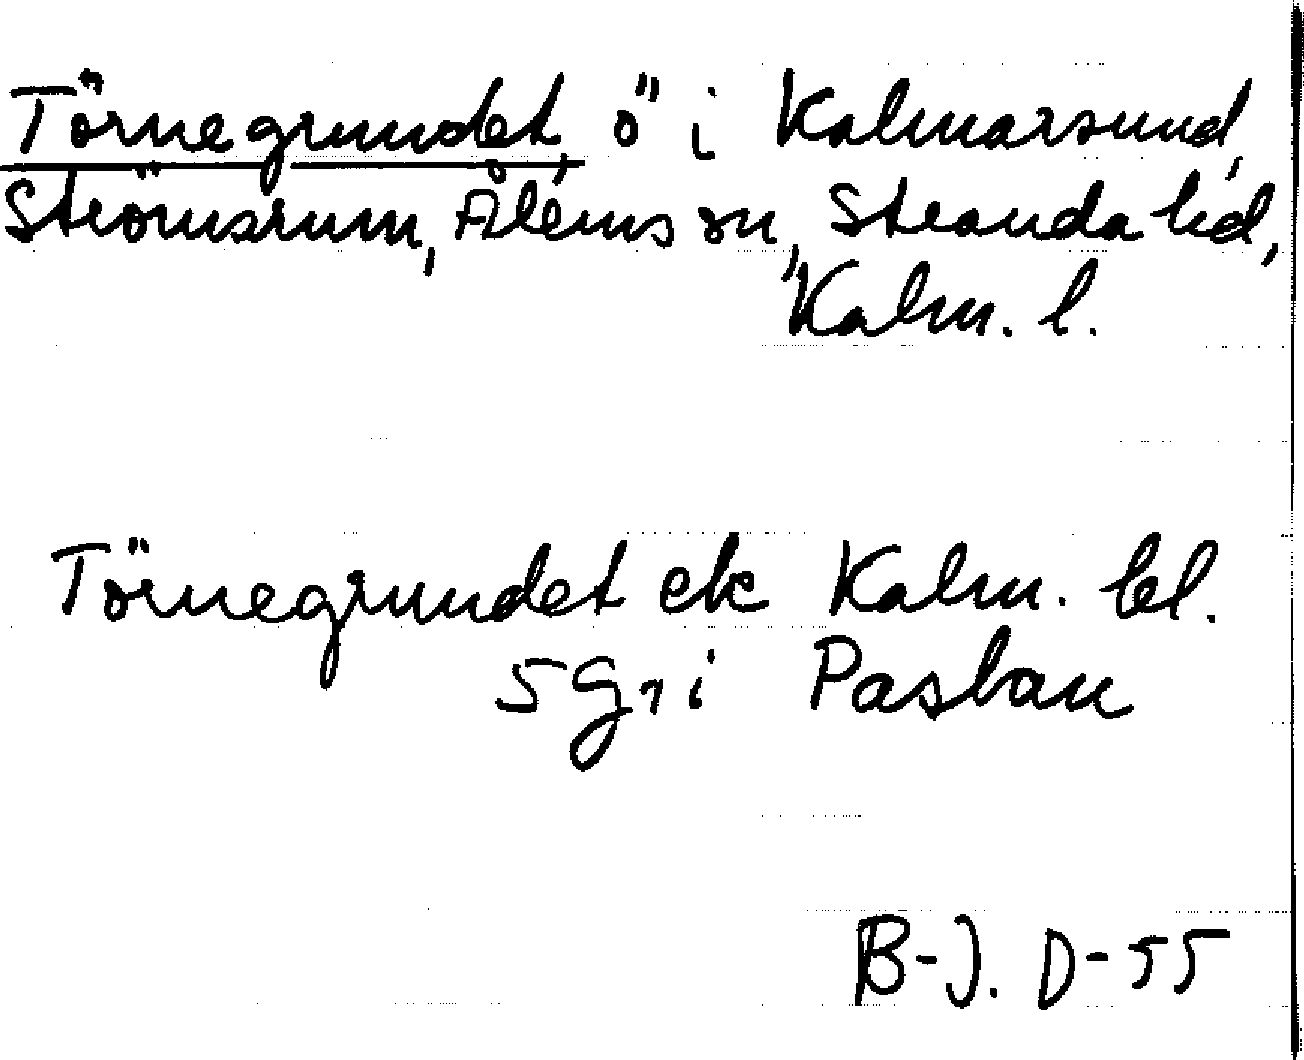 Törnegrundet, ö i Kalmarsund,
Strömsrum, Ålems sn, Stranda hd,
Kalm. l.
Törnegrundet ek Kalm. bl.
5 g, i Pasbau
B-J. D-55